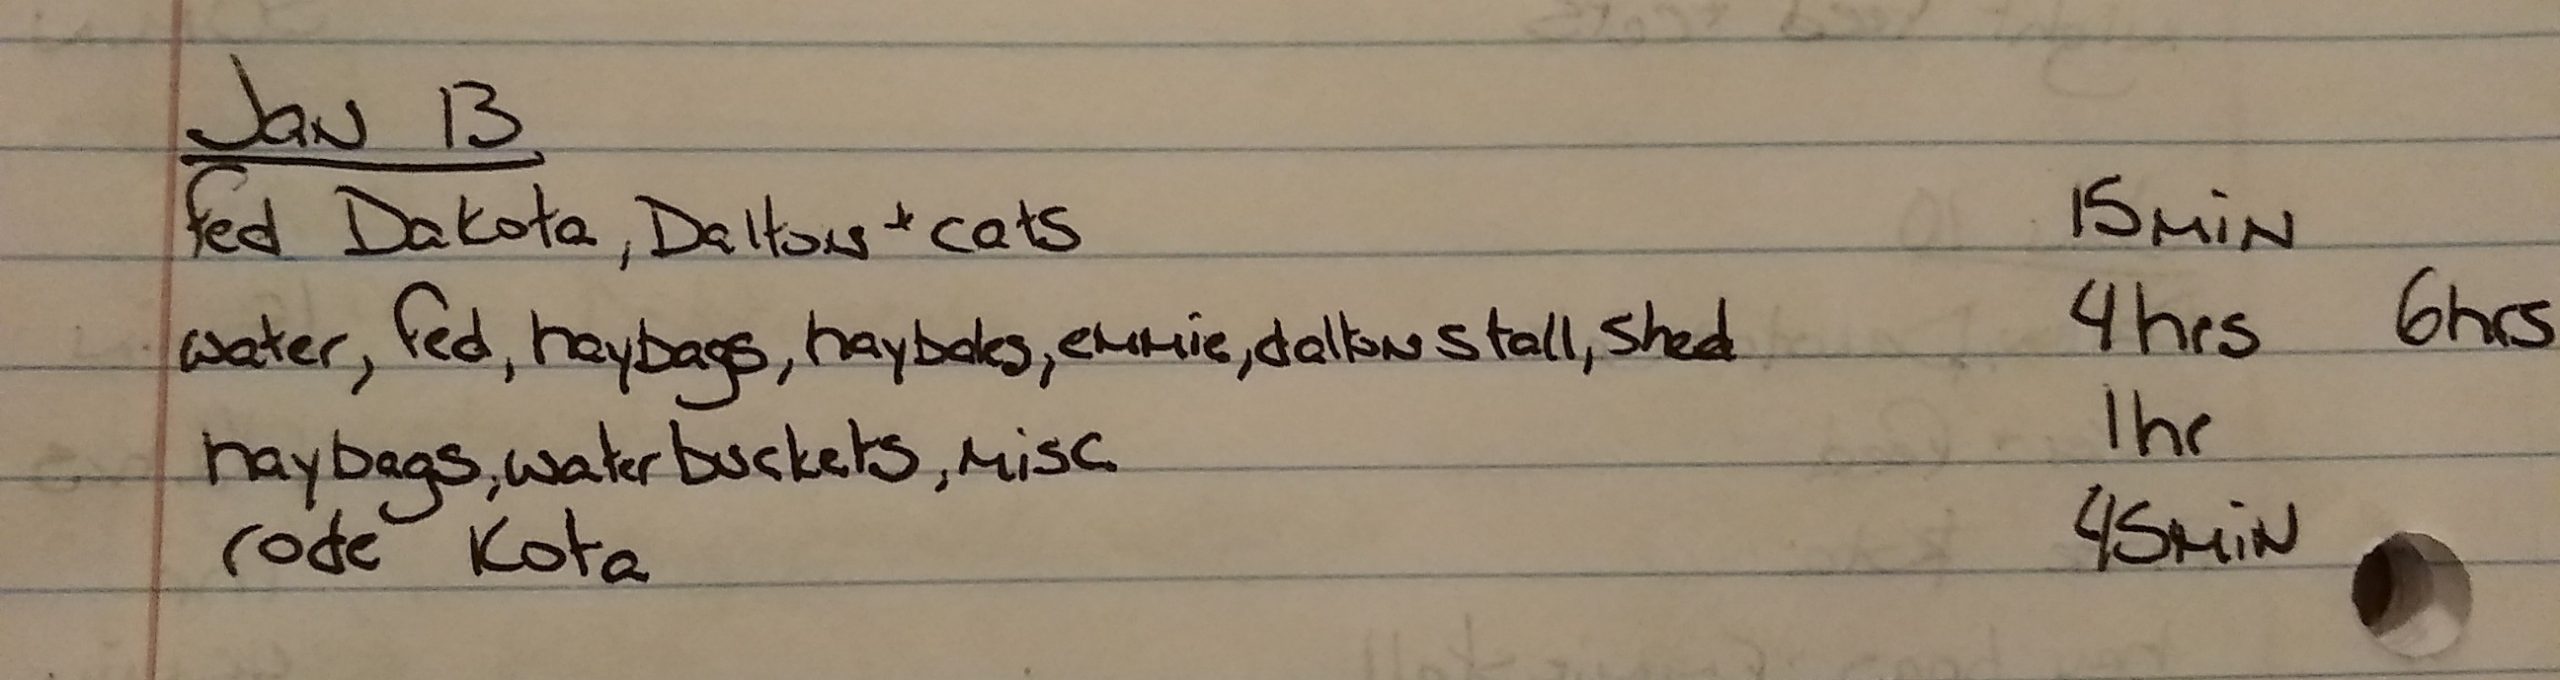 Jan 13
fed Dakota, Dalton + cats 15 min
water, fed, haybags, haybales, emmie, dalton stall, shed 4 hrs 6 hrs
haybags, water buckets, misc 1 hr
rode Kota 45 min